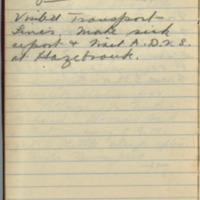 Visited Transport-
lines, Make sick
report & Visit A.D.V.S.
at Hazebrouk.